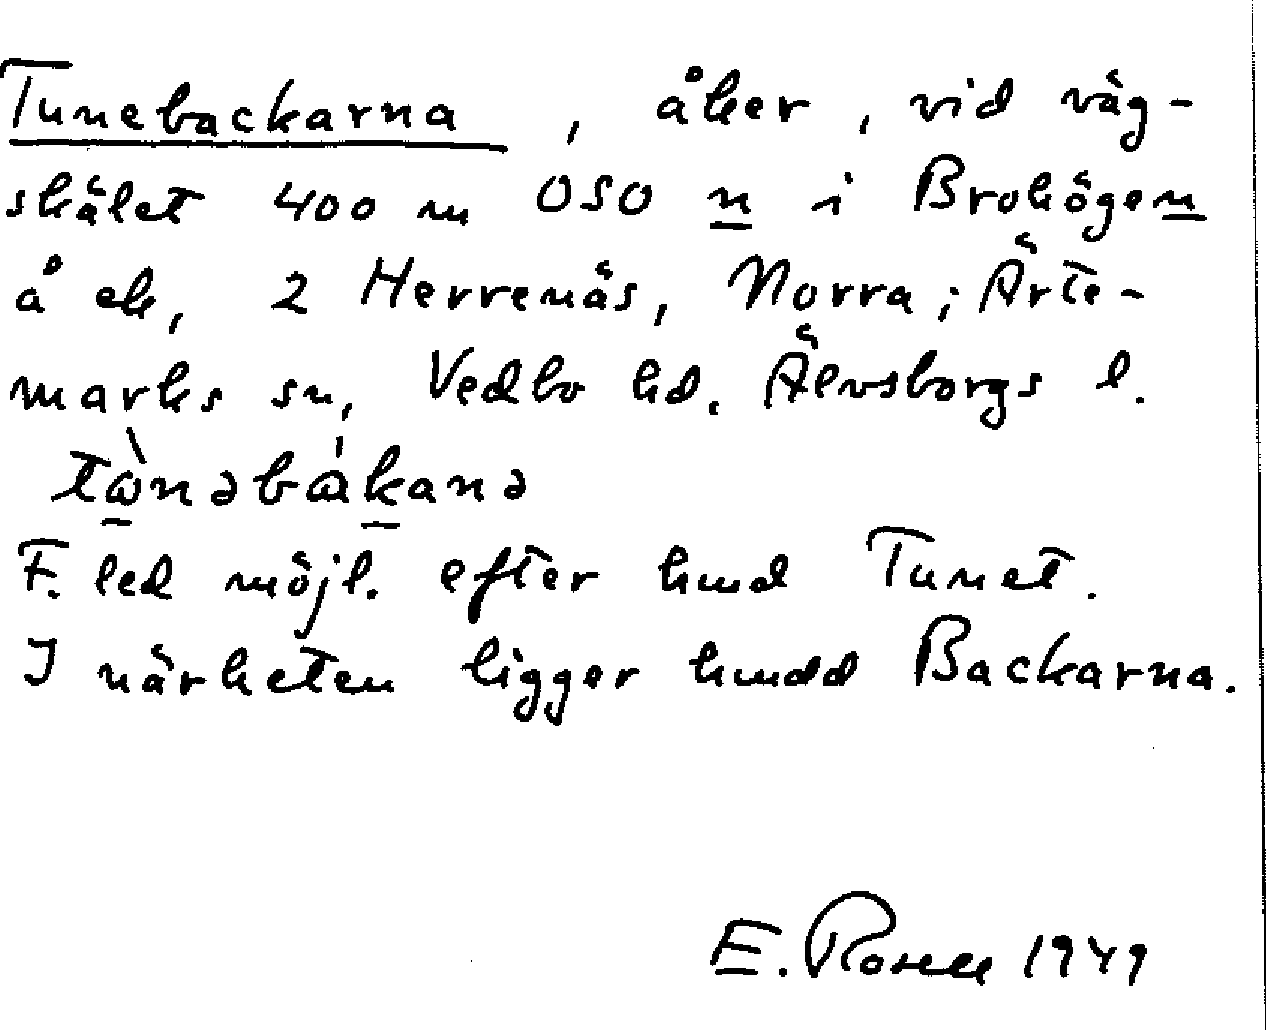 Tunebackarna, åker, vid väg-
skälet 400 m OSO n i Brohögen
å ek, 2 Herrenäs, Norra; Ärte-
marks sn, Vedbo hd. Älvsborgs l.
tὼnəbɑ̀kanə
F. led möjl. efter hmd Tunet.
I närheten ligger hmdd Backarna.
E. Rosell 1949